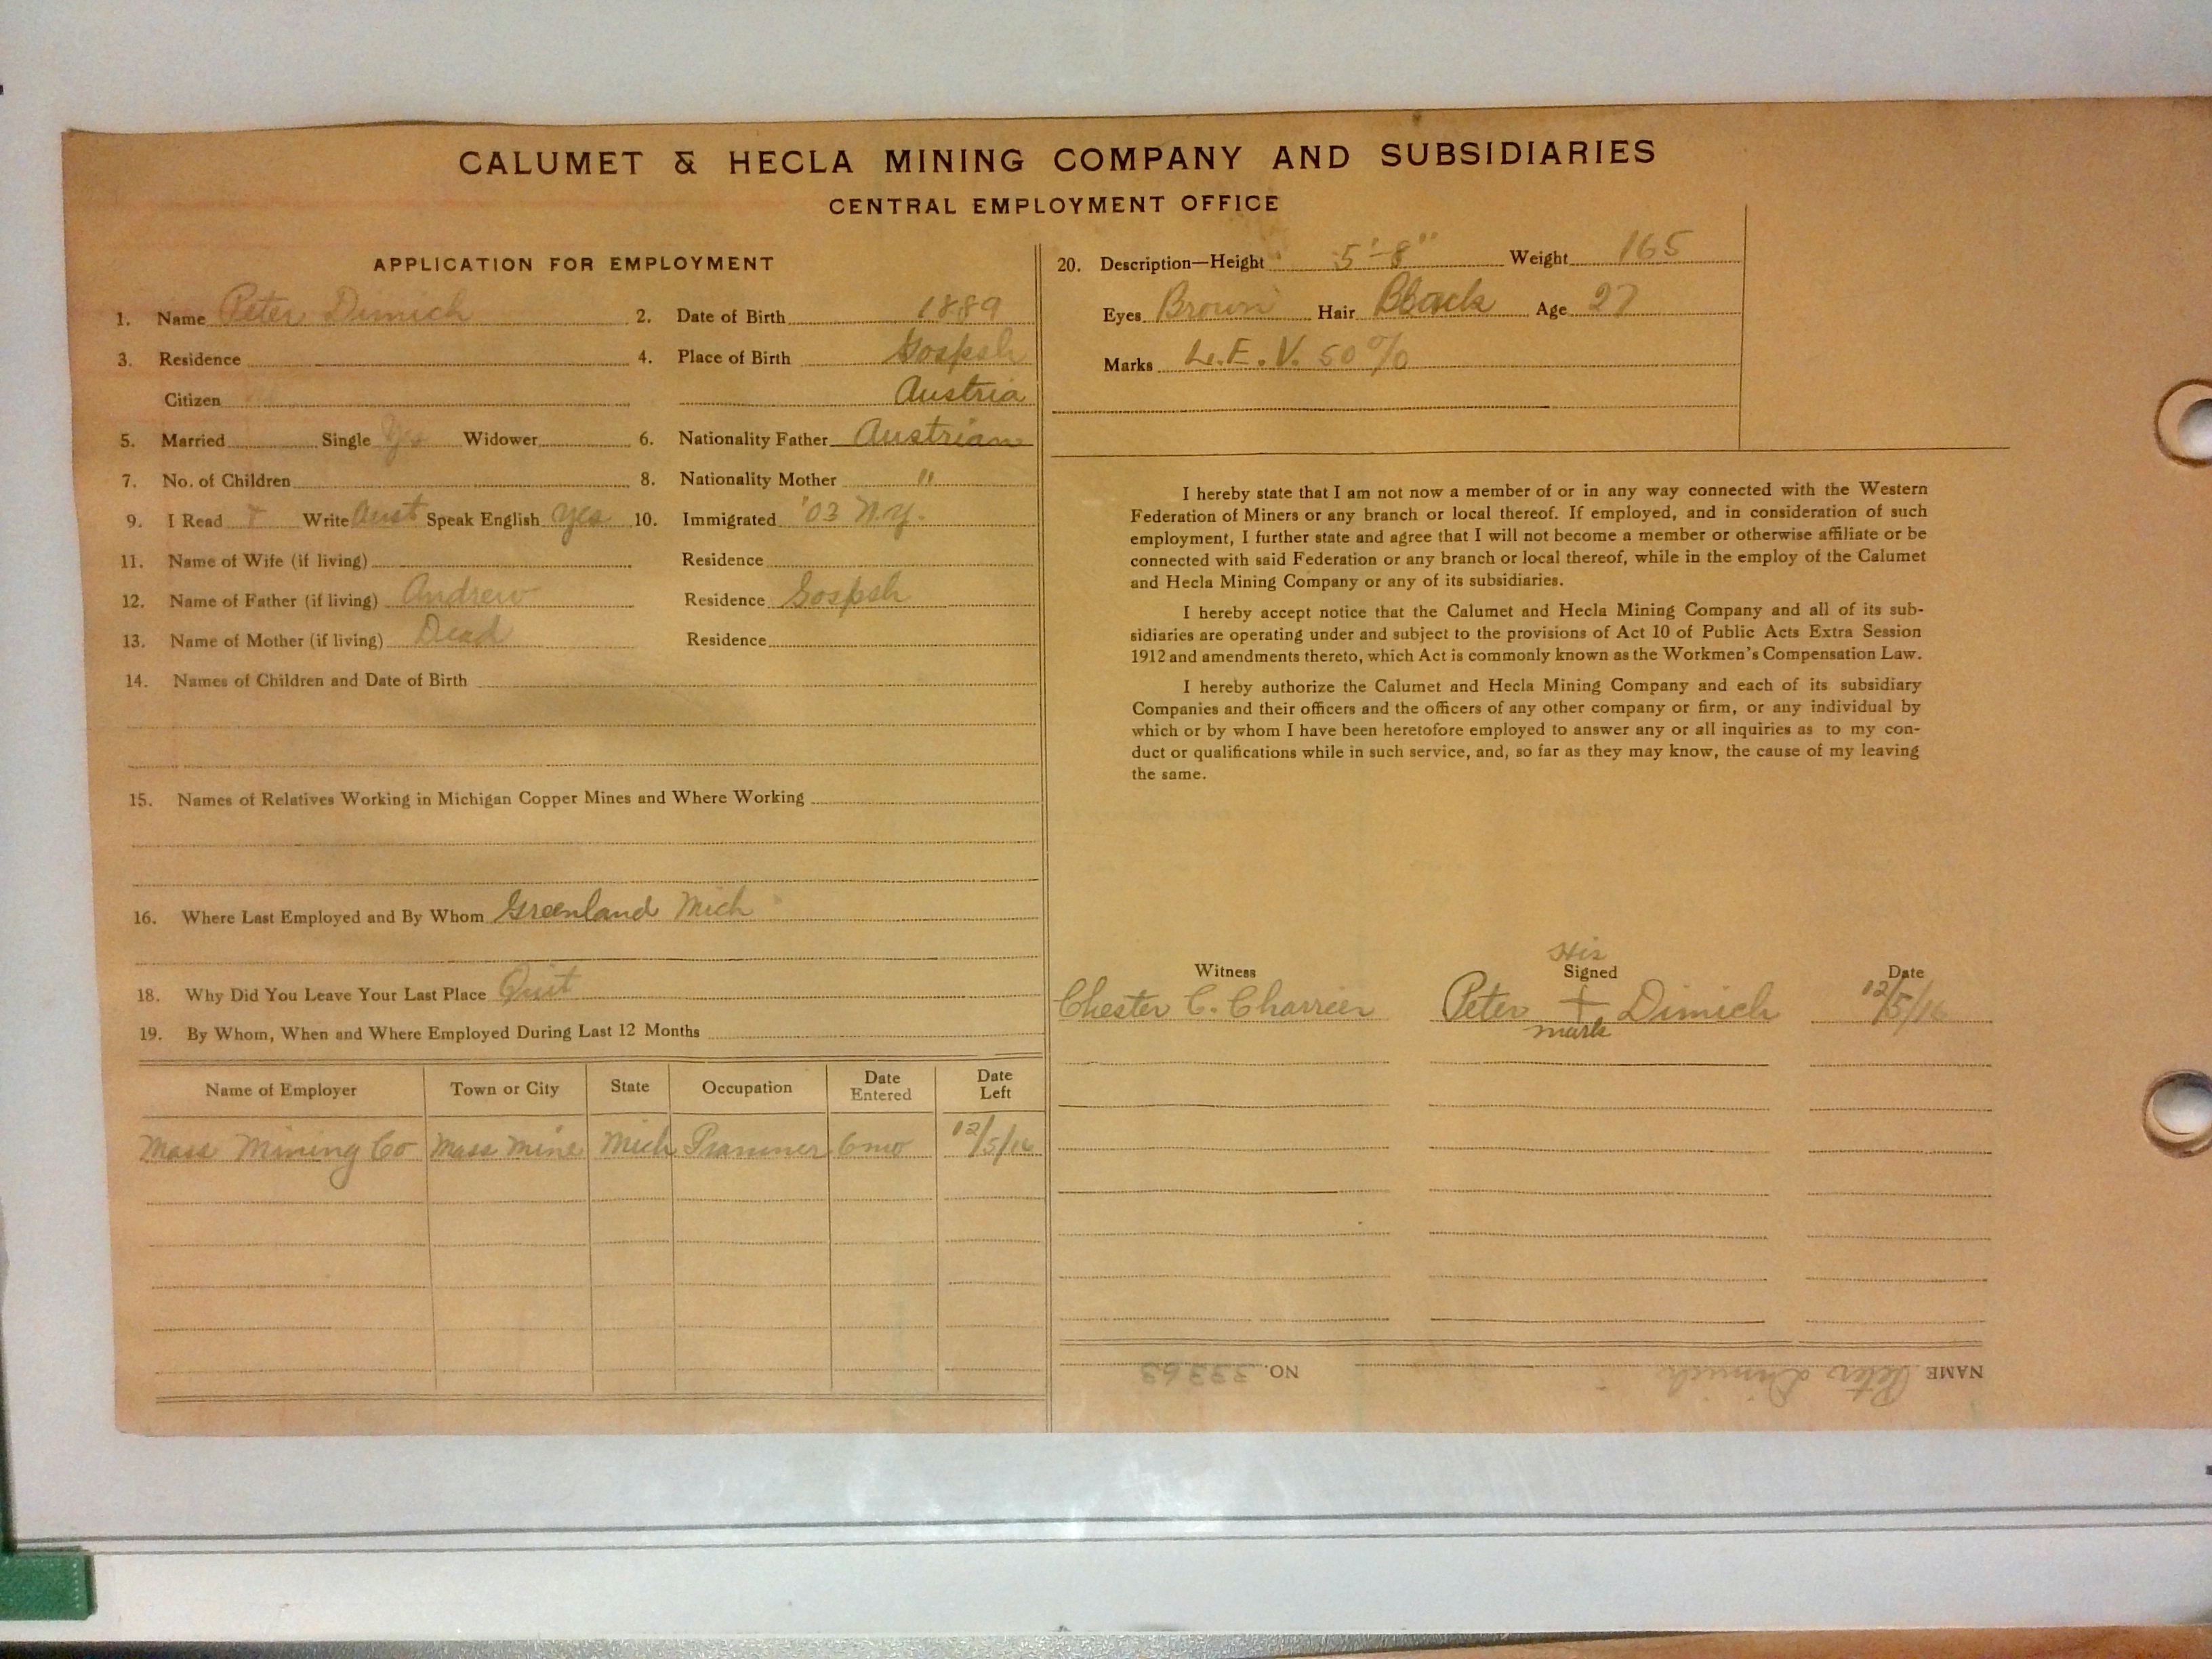 CALUMET & HECLA MINING COMPANY AND SUBSIDIARIES
CENTRAL EMPLOYMENT OFFICE
APPLICATION FOR EMPLOYMENT
1. Name Peter Dimich 2. Date of Birth 1889
3. Residence 4. Place of Birth Gospsh
Citizen Austria
5. Married Single Yes Widower 6. Nationality Father Austrian
7. No. of Children 8. Nationality Mother "
9. I Read & Write Aust Speak English Yes 10. Immigrated '03 N.Y.
11. Name of Wife (if living) Residence
12. Name of Father (if living) Andrew Residence Gospsh
13. Name of Mother (if living) Dead Residence
14. Names of Children and Date of Birth
15. Names of Relatives Working in Michigan Copper Mines and Where Working
16. Where Last Employed and By Whom Greenland Mich
18. Why Did You Leave Your Last Place Quit
19. By Whom, When and Where Employed During Last 12 Months
Name of Employer Town or City State Occupation Date Entered Date Left
Mass Mining Co Mass Mine Mich Trammer 6 mo 12/5/16
20. Description—Height 5'-8" Weight 165
Eyes Brown Hair Black Age 27
Marks L.E.V. 50%
I hereby state that I am not now a member of or in any way connected with the Western
Federation of Miners or any branch or local thereof. If employed, and in consideration of such
employment, I further state and agree that I will not become a member or otherwise affiliate or be
connected with said Federation or any branch or local thereof, while in the employ of the Calumet
and Hecla Mining Company or any of its subsidiaries.
I hereby accept notice that the Calumet and Hecla Mining Company and all of its sub-
sidiaries are operating under and subject to the provisions of Act 10 of Public Acts Extra Session
1912 and amendments thereto, which Act is commonly known as the Workmen's Compensation Law.
I hereby authorize the Calumet and Hecla Mining Company and each of its subsidiary
Companies and their officers and the officers of any other company or firm, or any individual by
which or by whom I have been heretofore employed to answer any or all inquiries as to my con-
duct or qualifications while in such service, and, so far as they may know, the cause of my leaving
the same.
Witness Signed Date
His
Chester C. Charrier Peter + Dimich 12/5/16
mark
NAME Peter Dimich NO. 33363